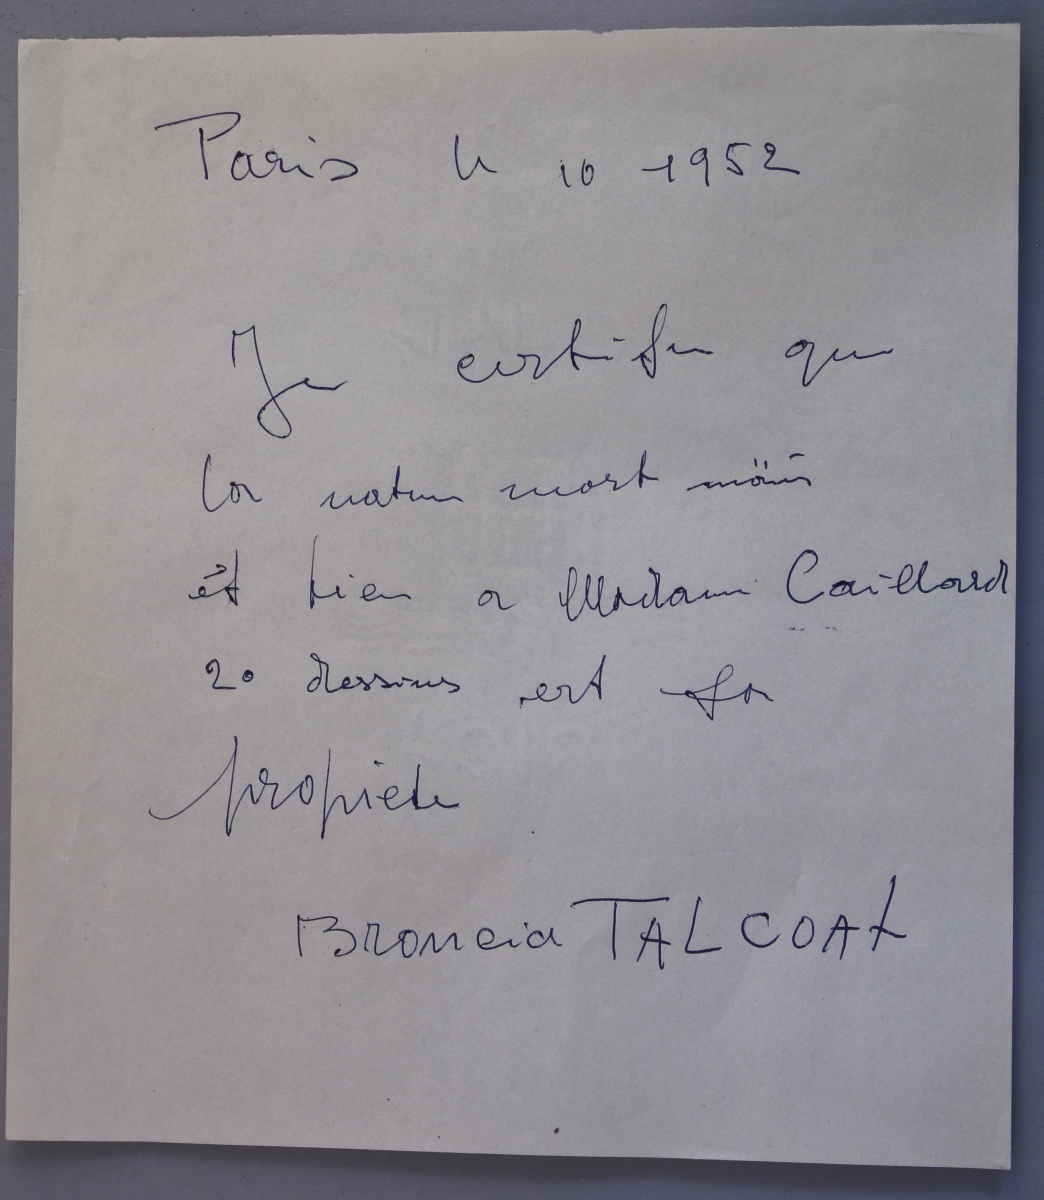 Paris le 10-1952
Je certifie que
la nature morte
êt bien a Madame Caillard
20 dessins est sa
propiete
Broncia TALCOAT